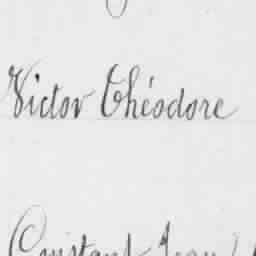 Victor Théodore
Constant Jean